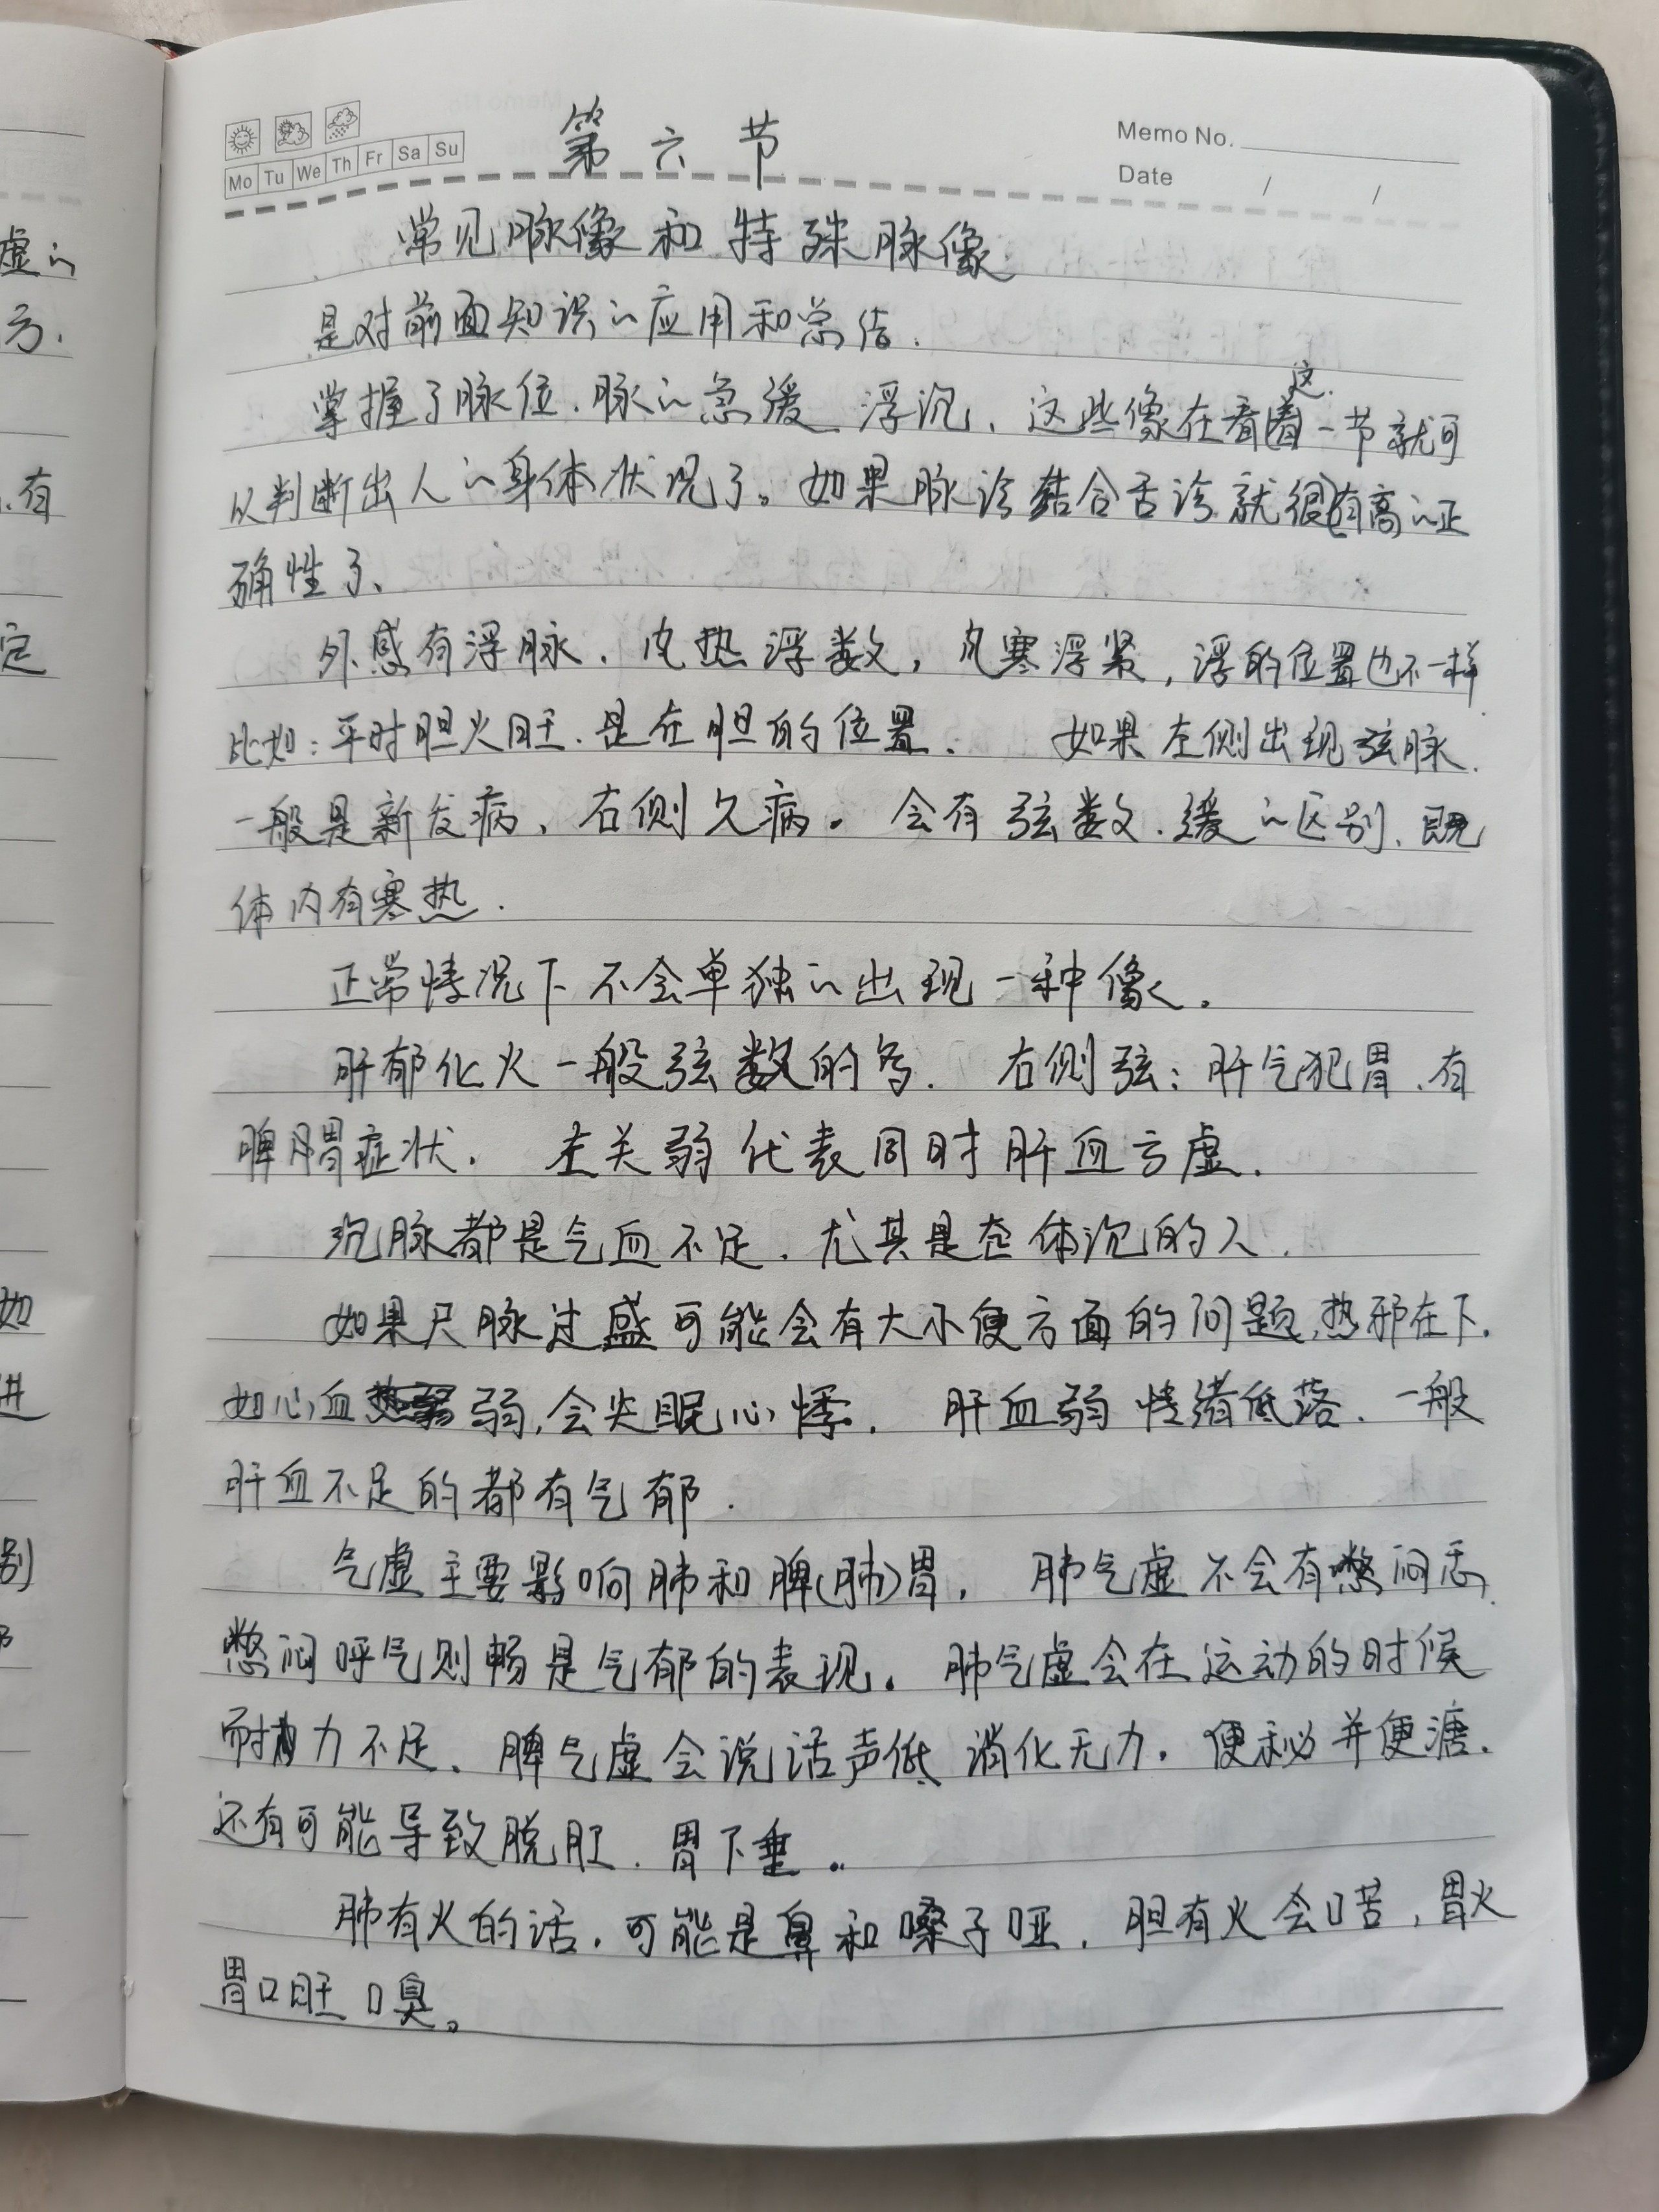 第六节
Memo No.
Mo Tu We Th Fr Sa Su
Date / /
常见脉像和特殊脉像
是对前面知识的应用和总结.
掌握了脉位.脉的急缓.浮沉、这些像在看着这一节就可
以判断出人的身体状况了。如果脉诊结合舌诊就很有高的正
确性了、
外感有浮脉.内热浮数,内寒浮紧,浮的位置也不一样
比如:平时胆火旺.是在胆的位置. 如果左侧出现弦脉.
一般是新发病、右侧久病。会有弦数.缓的区别.既
体内有寒热.
正常情况下不会单独的出现一种像。
肝郁化火一般弦数的多. 右侧弦:肝气犯胃.有
脾胃症状. 左关弱代表同时肝血亏虚.
沉脉都是气血不足.尤其是整体沉的人.
如果尺脉过盛可能会有大小便方面的问题,热邪在下.
如心血弱,会失眠心悸. 肝血弱情绪低落.一般
肝血不足的都有气郁.
气虚主要影响肺和脾(肺)胃, 肺气虚不会有憋闷
憋闷呼气则畅是气郁的表现。肺气虚会在运动的时候
耐力不足、脾气虚会说话声低、消化无力.便秘并便溏.
还有可能导致脱肛.胃下垂。
肺有火的话.可能是鼻和嗓子哑.胆有火会口苦,胃火
胃口旺口臭。
虚的
方.
有
定
如
进
别